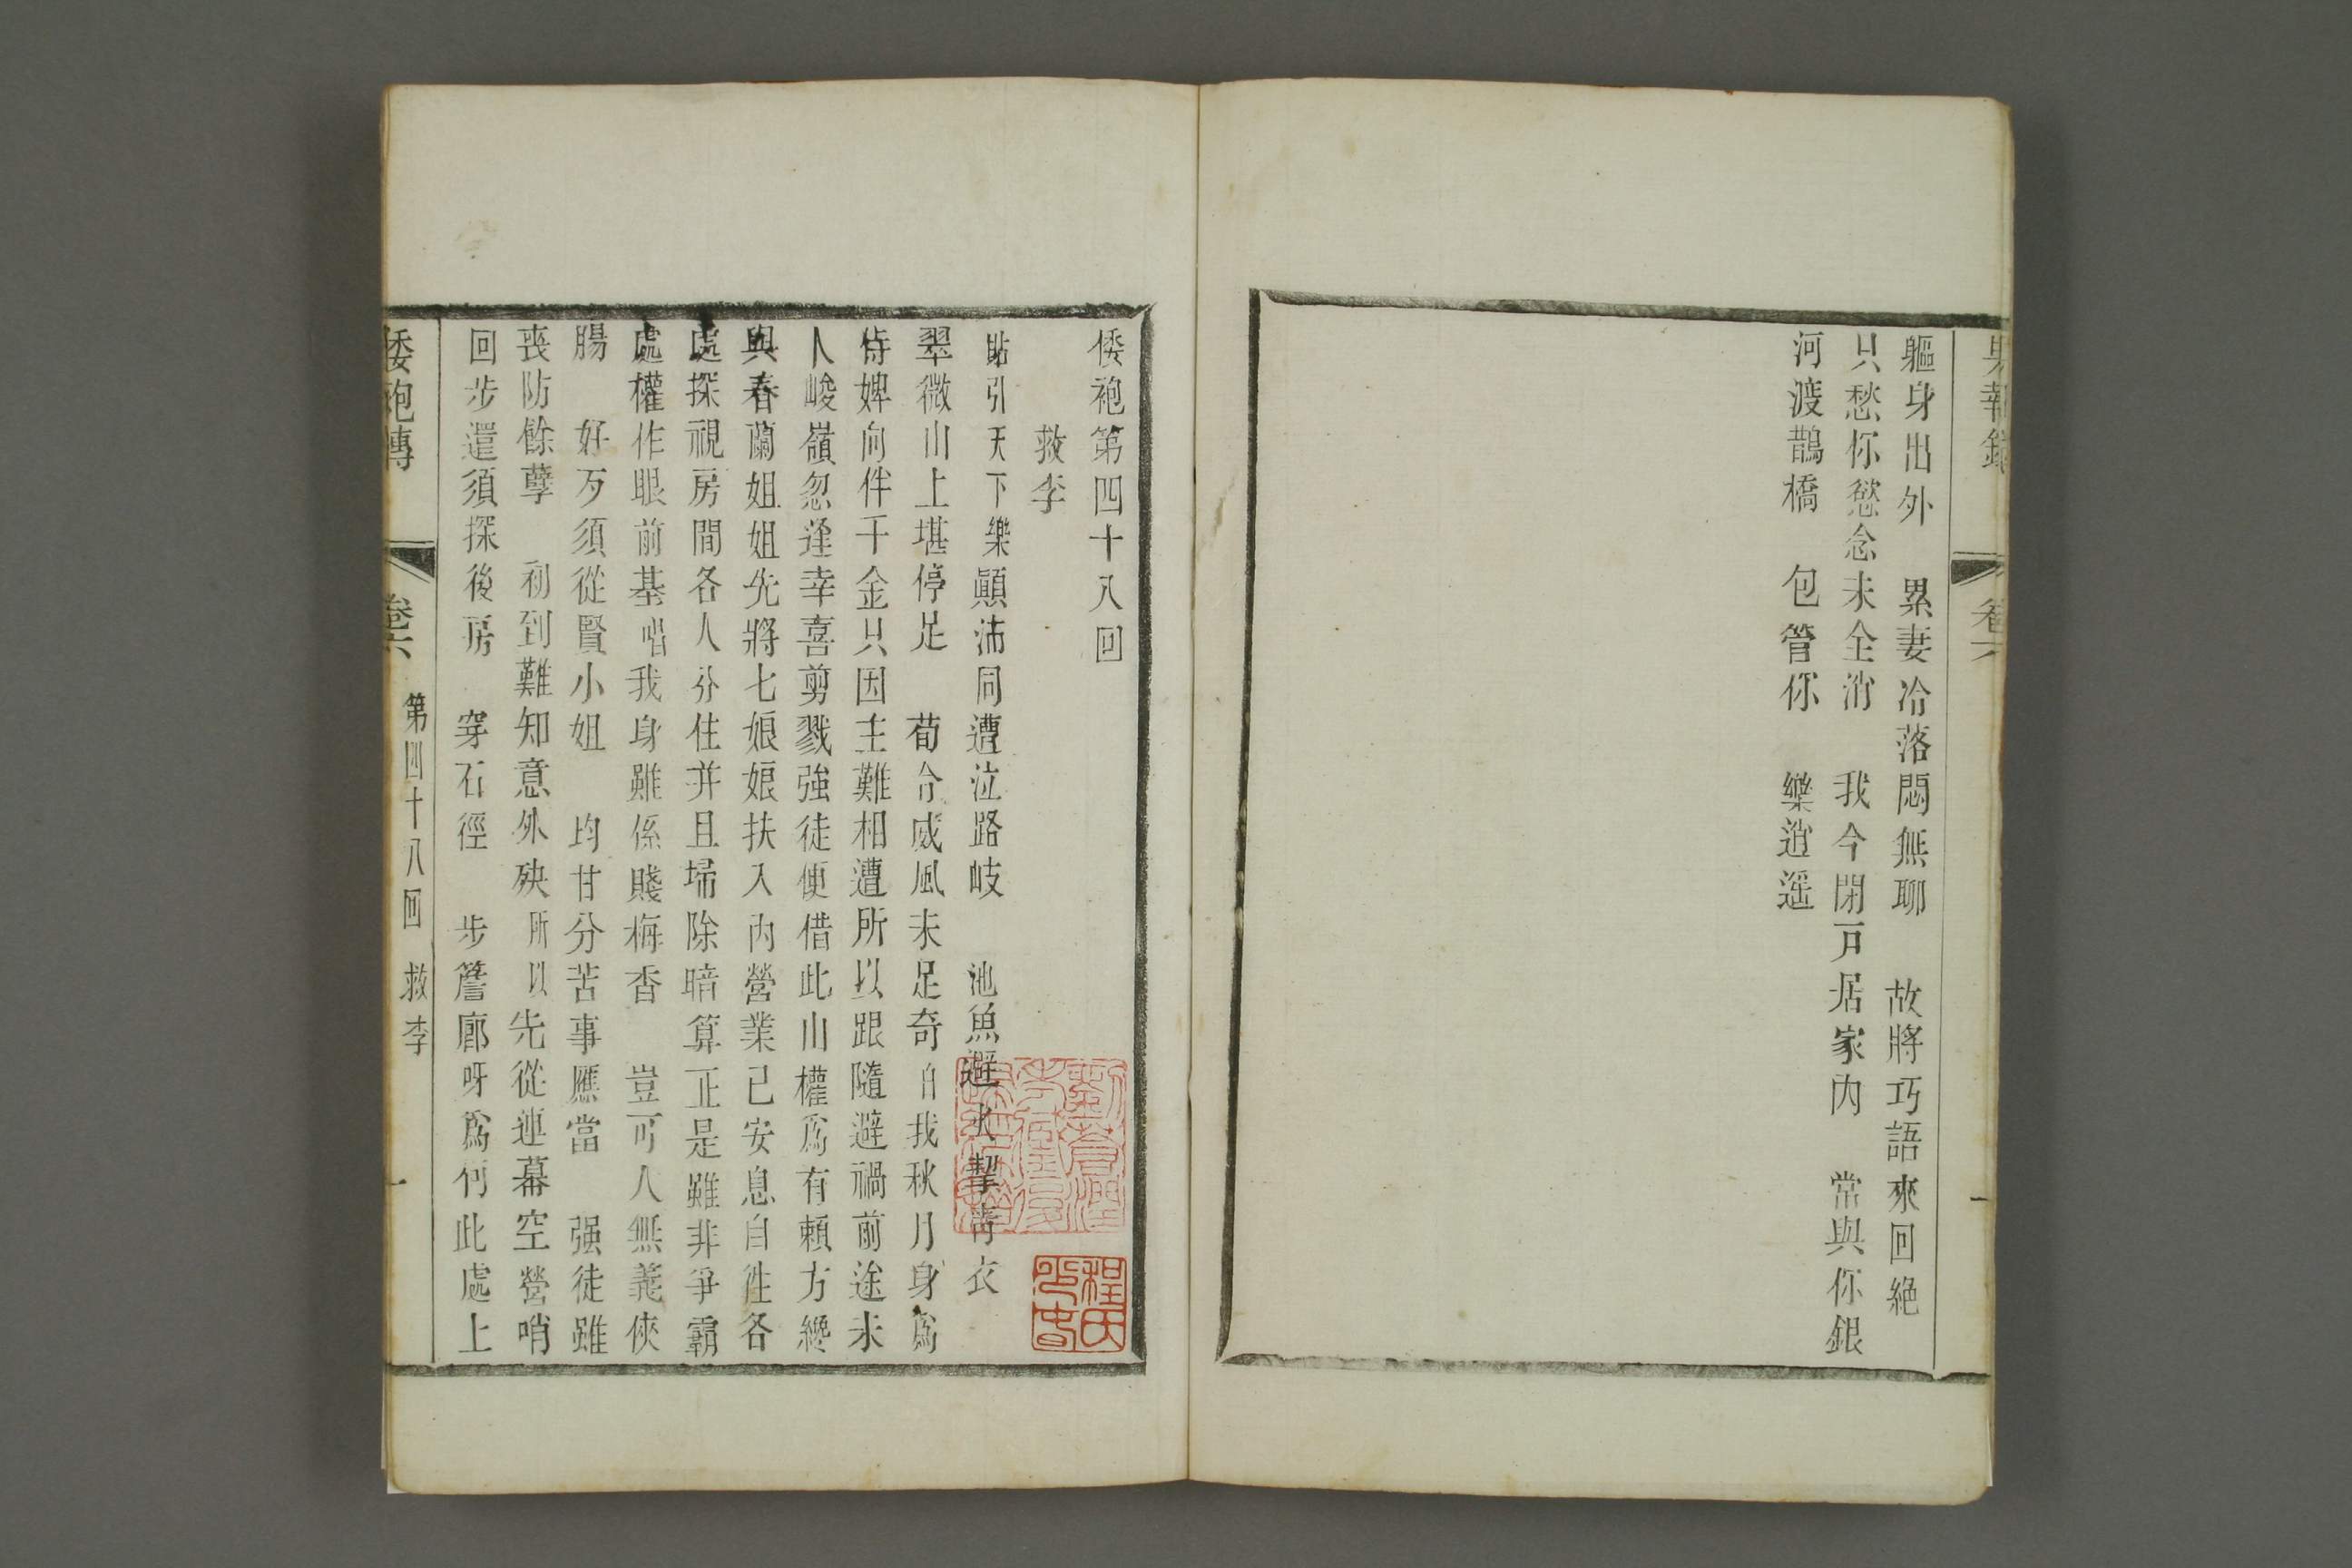 果報錄 卷六 一
軀身出外 累妻冷落悶無聊 故將巧語來回絶
只愁你慾念未全消 我今閉戸居家內 常與你銀
河渡鵲橋 包管你 樂逍遥
倭袍第四十八回
救李
貼引天下樂顚沛同遭泣路岐 池魚避火挈靑衣
翠微山上堪停足 荀令威風未足奇 自我秋月身爲
侍婢向伴千金只因主難相遭所以跟隨避禍前途未
人峻嶺忽逢幸喜剪戮強徒便借此山權爲有賴方纔
與春蘭姐姐先將七娘娘扶入內營業已安息自往各
處探視房間各人分住并且埽除暗算正是雖非爭霸
處權作眼前基唱我身雖係賤梅香 豈可人無義俠
腸 好歹須從賢小姐 均甘分苦事應當 强徒雖
喪防餘孽 初到難知意外殃所以先從連幕空營哨
回步還須探後房 穿石徑 步簷廊呀爲何此處上
倭袍傳 卷六 第四十八回 救李 一
程氏